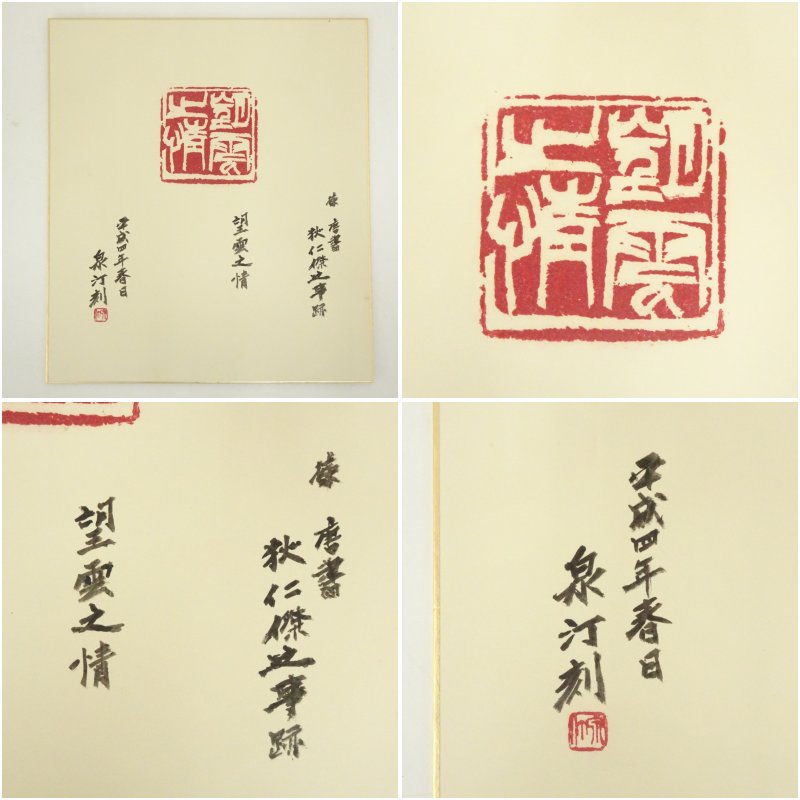 望雲
之情
録 唐書
狄仁傑之事跡
望雲之情
平成四年春日
泉汀刻
望雲
之情
録 唐書
狄仁傑之事跡
望雲之情
平成四年春日
泉汀刻